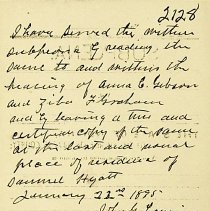 2128
I have served the within
subpoena by reading the
same to and within the
hearing of Anna C. Gibson
and Ziba F. Graham
and by leaving a true and
certified copy of the same
at the last and usual
place of residence of
Samuel Hyatt
January 22nd 1895
John